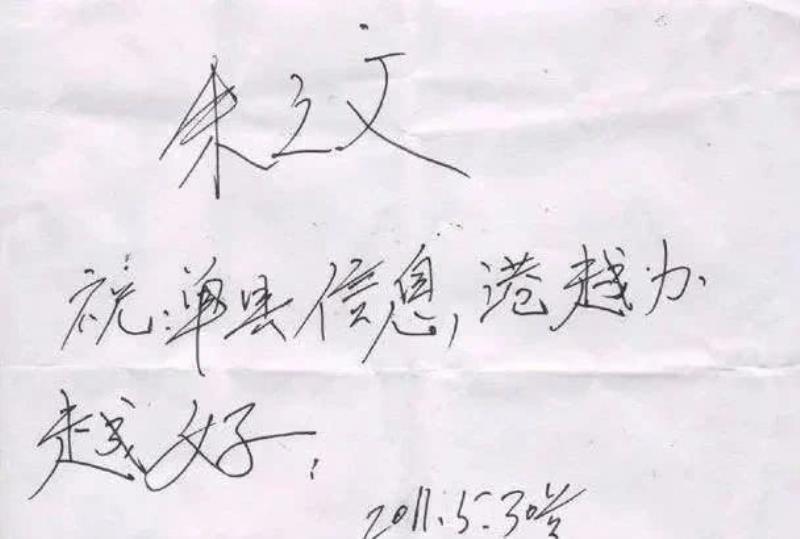 朱之文
祝:单县信息,港越办
越好!
2011.5.30